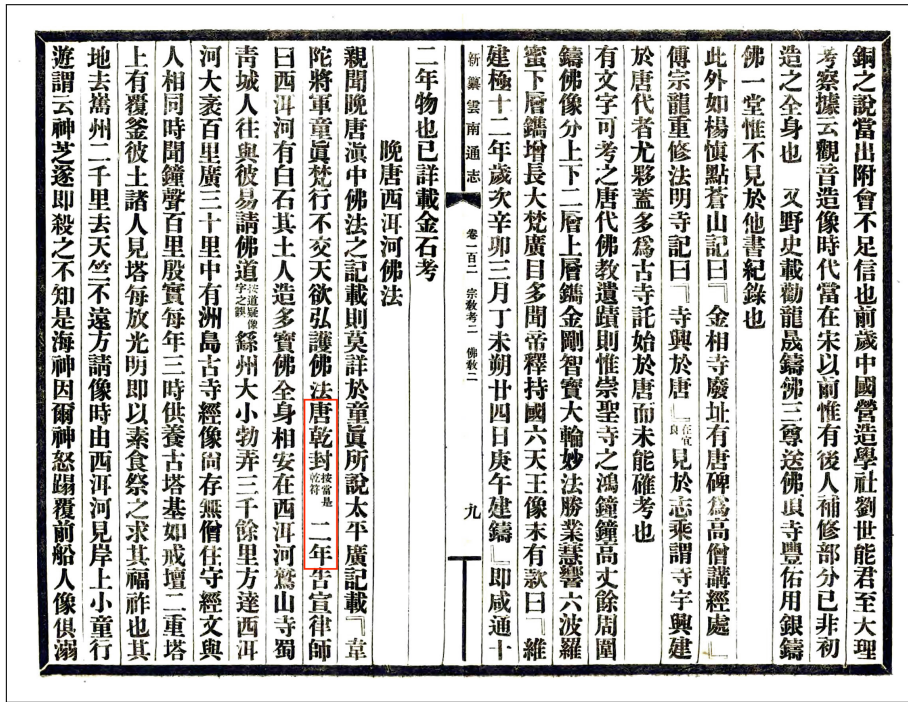 銅之說當出附會不足信也前歲中國營造學社劉世能君至大理
考察據云觀音造像時代當在宋以前惟有後人補修部分已非初
造之全身也　又野史載勸龍晟鑄佛三尊送佛頂寺豐佑用銀鑄
佛一堂惟不見於他書紀錄也
此外如楊慎點蒼山記曰『金相寺廢址有唐碑爲高僧講經處』
傅宗龍重修法明寺記曰『寺興於唐』在宜良見於志乘謂寺宇興建
於唐代者尤夥蓋多爲古寺託始於唐而未能確考也
有文字可考之唐代佛教遺蹟則惟崇聖寺之鴻鐘鐘高丈餘周圍
鑄佛像分上下二層上層鐫金剛智寶大輪妙法勝業慧響六波羅
蜜下層鐫增長大梵廣目多聞帝釋持國六天王像末有款曰『維
建極十二年歲次辛卯三月丁未朔廿四日庚午建鑄』即咸通十
新纂雲南通志　卷一百二　宗教考二　佛教二　九
二年物也已詳載金石考
晚唐西洱河佛法
親聞晚唐滇中佛法之記載則莫詳於童眞所說太平廣記載『韋
陀將軍童眞梵行不交天欲弘護佛法唐乾封按當是乾符二年告宣律師
曰西洱河有白石其土人造多寶佛全身相安在西洱河鷲山寺蜀
靑城人往與彼易請佛道按道疑像字之誤繇州大小勃弄三千餘里方達西洱
河大袤百里廣三十里中有洲島古寺經像尙存無僧住守經文與
人相同時聞鐘聲百里殷實每年三時供養古塔基如戒壇二重塔
上有覆釜彼土諸人見塔每放光明即以素食祭之求其福祚也其
地去巂州二千里去天竺不遠方請像時由西洱河見岸上小童行
遊謂云神芝遂即殺之不知是海神因爾神怒蹋覆前船人像俱溺